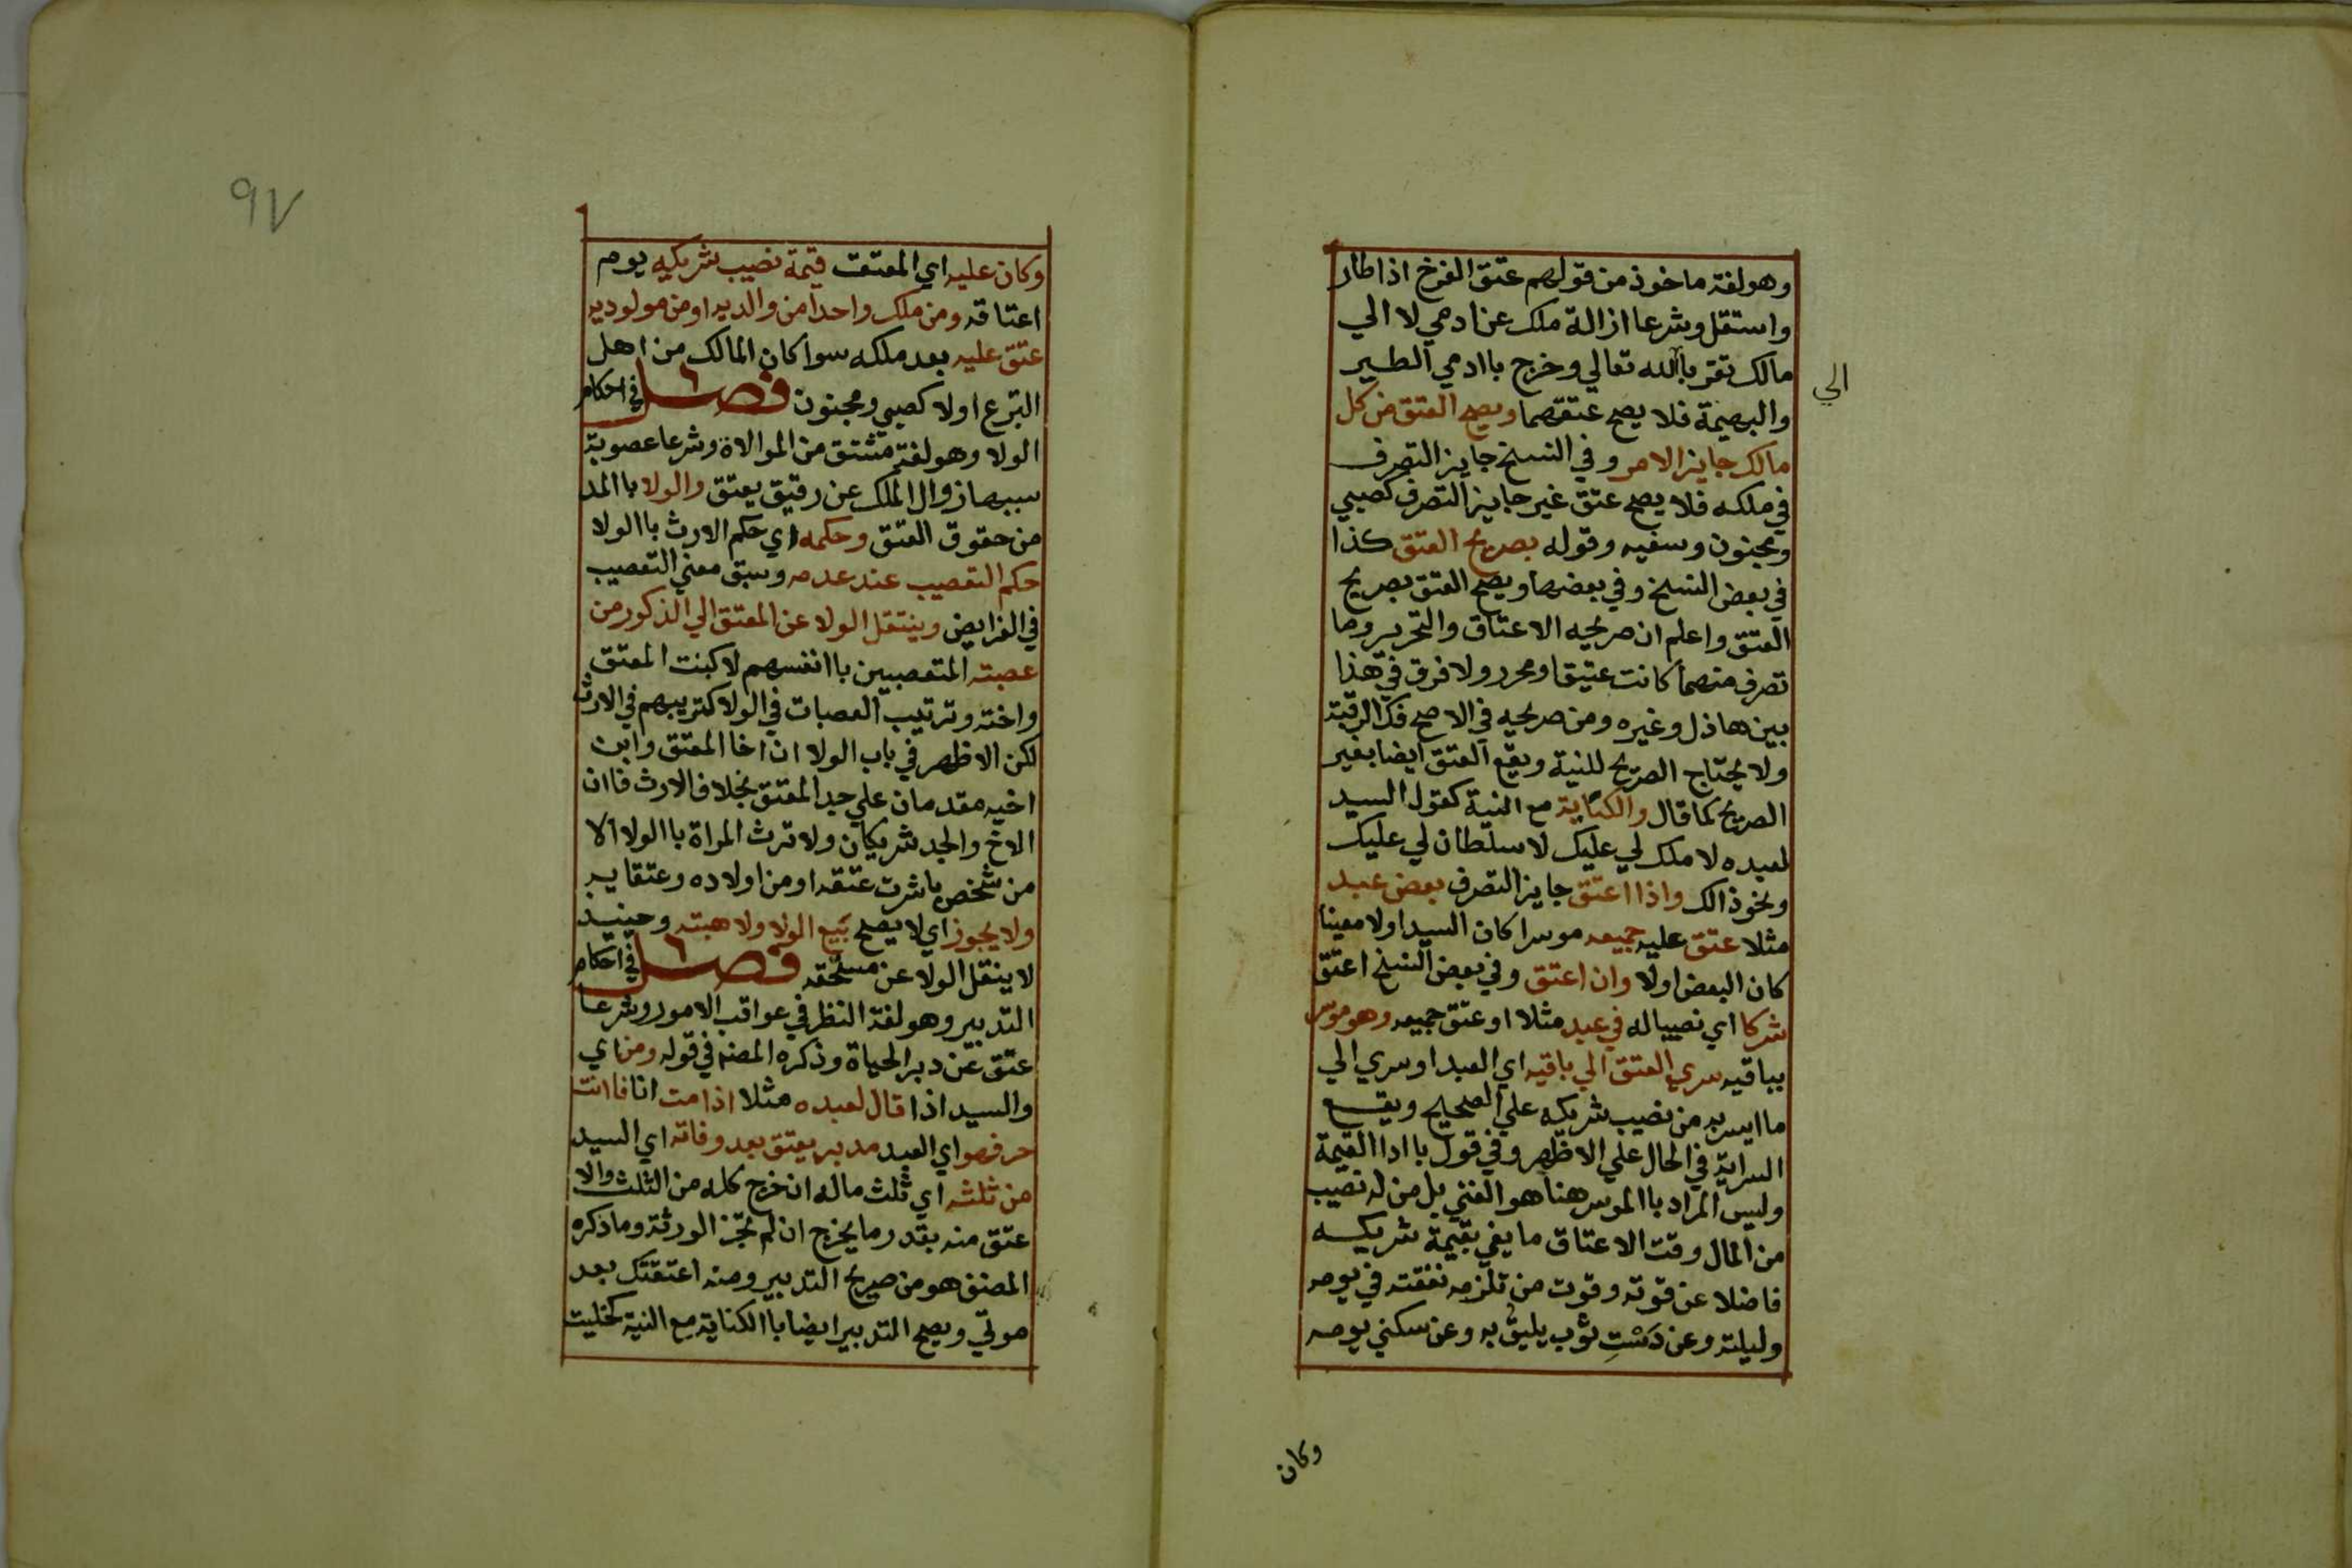 وهو لغة ماخوذ من قولهم عتق الفرخ اذا طار
واستقل وشرعا ازالة ملك عن ادمي لا الي
مالك تقربا الله تعالي وخرج باادمي الطير
الي
والبهيمة فلا يصح عتقهما ويصح العتق من كل
مالك جايز الامر وفي النسخ جايز التصرف
في ملكه فلا يصح عتق غير جايز التصرف كصبي
ومجنون وسفيه وقوله بصريح العتق كذا
في بعض النسخ وفي بعضها ويصح العتق بصريح
العتق واعلم ان صريحه الاعتاق والتحرير وما
تصرف منهما كانت عتيق او محرر ولا فرق في هذا
بين هاذل وغيره ومن صريحه في الاصح فك الرقبة
ولا يحتاج الصريح للنية ويقع العتق ايضا بغير
الصريح كما قال والكناية مع النية كقول السيد
لعبده لا ملك لي عليك لا سلطان لي عليك
ونحوذالك واذا اعتق جايز التصرف بعض عبد
مثلا عتق عليه جميعه موسرا كان السيد اولا معينا
كان البعض اولا وان اعتق وفي بعض النسخ اعتق
شركا اي نصيبا له في عبد مثلا او عتق جميعه وهو موسر
بباقيه سري العتق الي باقيه اي العبد او سري الي
ما ايسر به من نصيب شريكه علي الصحيح ويقع
السراية في الحال علي الاظهر وفي قول باادا القيمة
وليس المراد باالموسر هنا هو الغني بل من له نصيب
من المال وقت الاعتاق ما يفي بقيمة شريكه
فاضلا عن قوته وقوت من تلزمه نفقته في يومه
وليلته وعن دست ثوب يليق به وعن سكني يومه
وكان
٩٧
وكان عليه اي المعتق قيمة نصيب شريكه يوم
اعتاقه ومن ملك واحدا من والديه او من مولوديه
عتق عليه بعد ملكه سوا كان المالك من اهل
التبرع اولا كصبي ومجنون فصل في احكام
الولا وهو لغة مشتق من الموالاة وشرعا عصوبة
سببها زوال الملك عن رقيق يعتق والولا باالمد
من حقوق العتق وحكمه اي حكم الارث باالولا
حكم التعصيب عند عدمه وسبق معني التعصيب
في الفرايض وينتقل الولا عن المعتق الي الذكور من
عصبته المتعصبين باانفسهم لا كبنت المعتق
واخته وترتيب العصبات في الولا كترتيبهم في الارث
لكن الاظهر في باب الولا ان اخا المعتق وابن
اخيه مقدمان علي جد المعتق بخلاف الارث فاان
الاخ والجد شريكان ولا ترث المراة باالولا الا
من شخص باشرت عتقه او من اولاده وعتقايه
ولا يجوز اي لا يصح بيع الولا ولا هبته وحينيد
لا ينقل الولا عن مستحقه فصل في احكام
التدبير وهو لغة النظر في عواقب الامور وشرعا
عتق عن دبر الحياة وذكره المصنف في قوله ومن اي
والسيد اذا قال لعبده مثلا اذا مت انا فاانت
حر فهو اي العبد مدبر يعتق بعد وفاته اي السيد
من ثلثه اي ثلث ماله ان خرج كله من الثلث والا
عتق منه بقدر ما يخرج ان لم تجز الورثة وما ذكره
المصنف هو من صريح التدبير ومنه اعتقتك بعد
موتي ويصح التدبير ايضا باالكناية مع النية كخليت